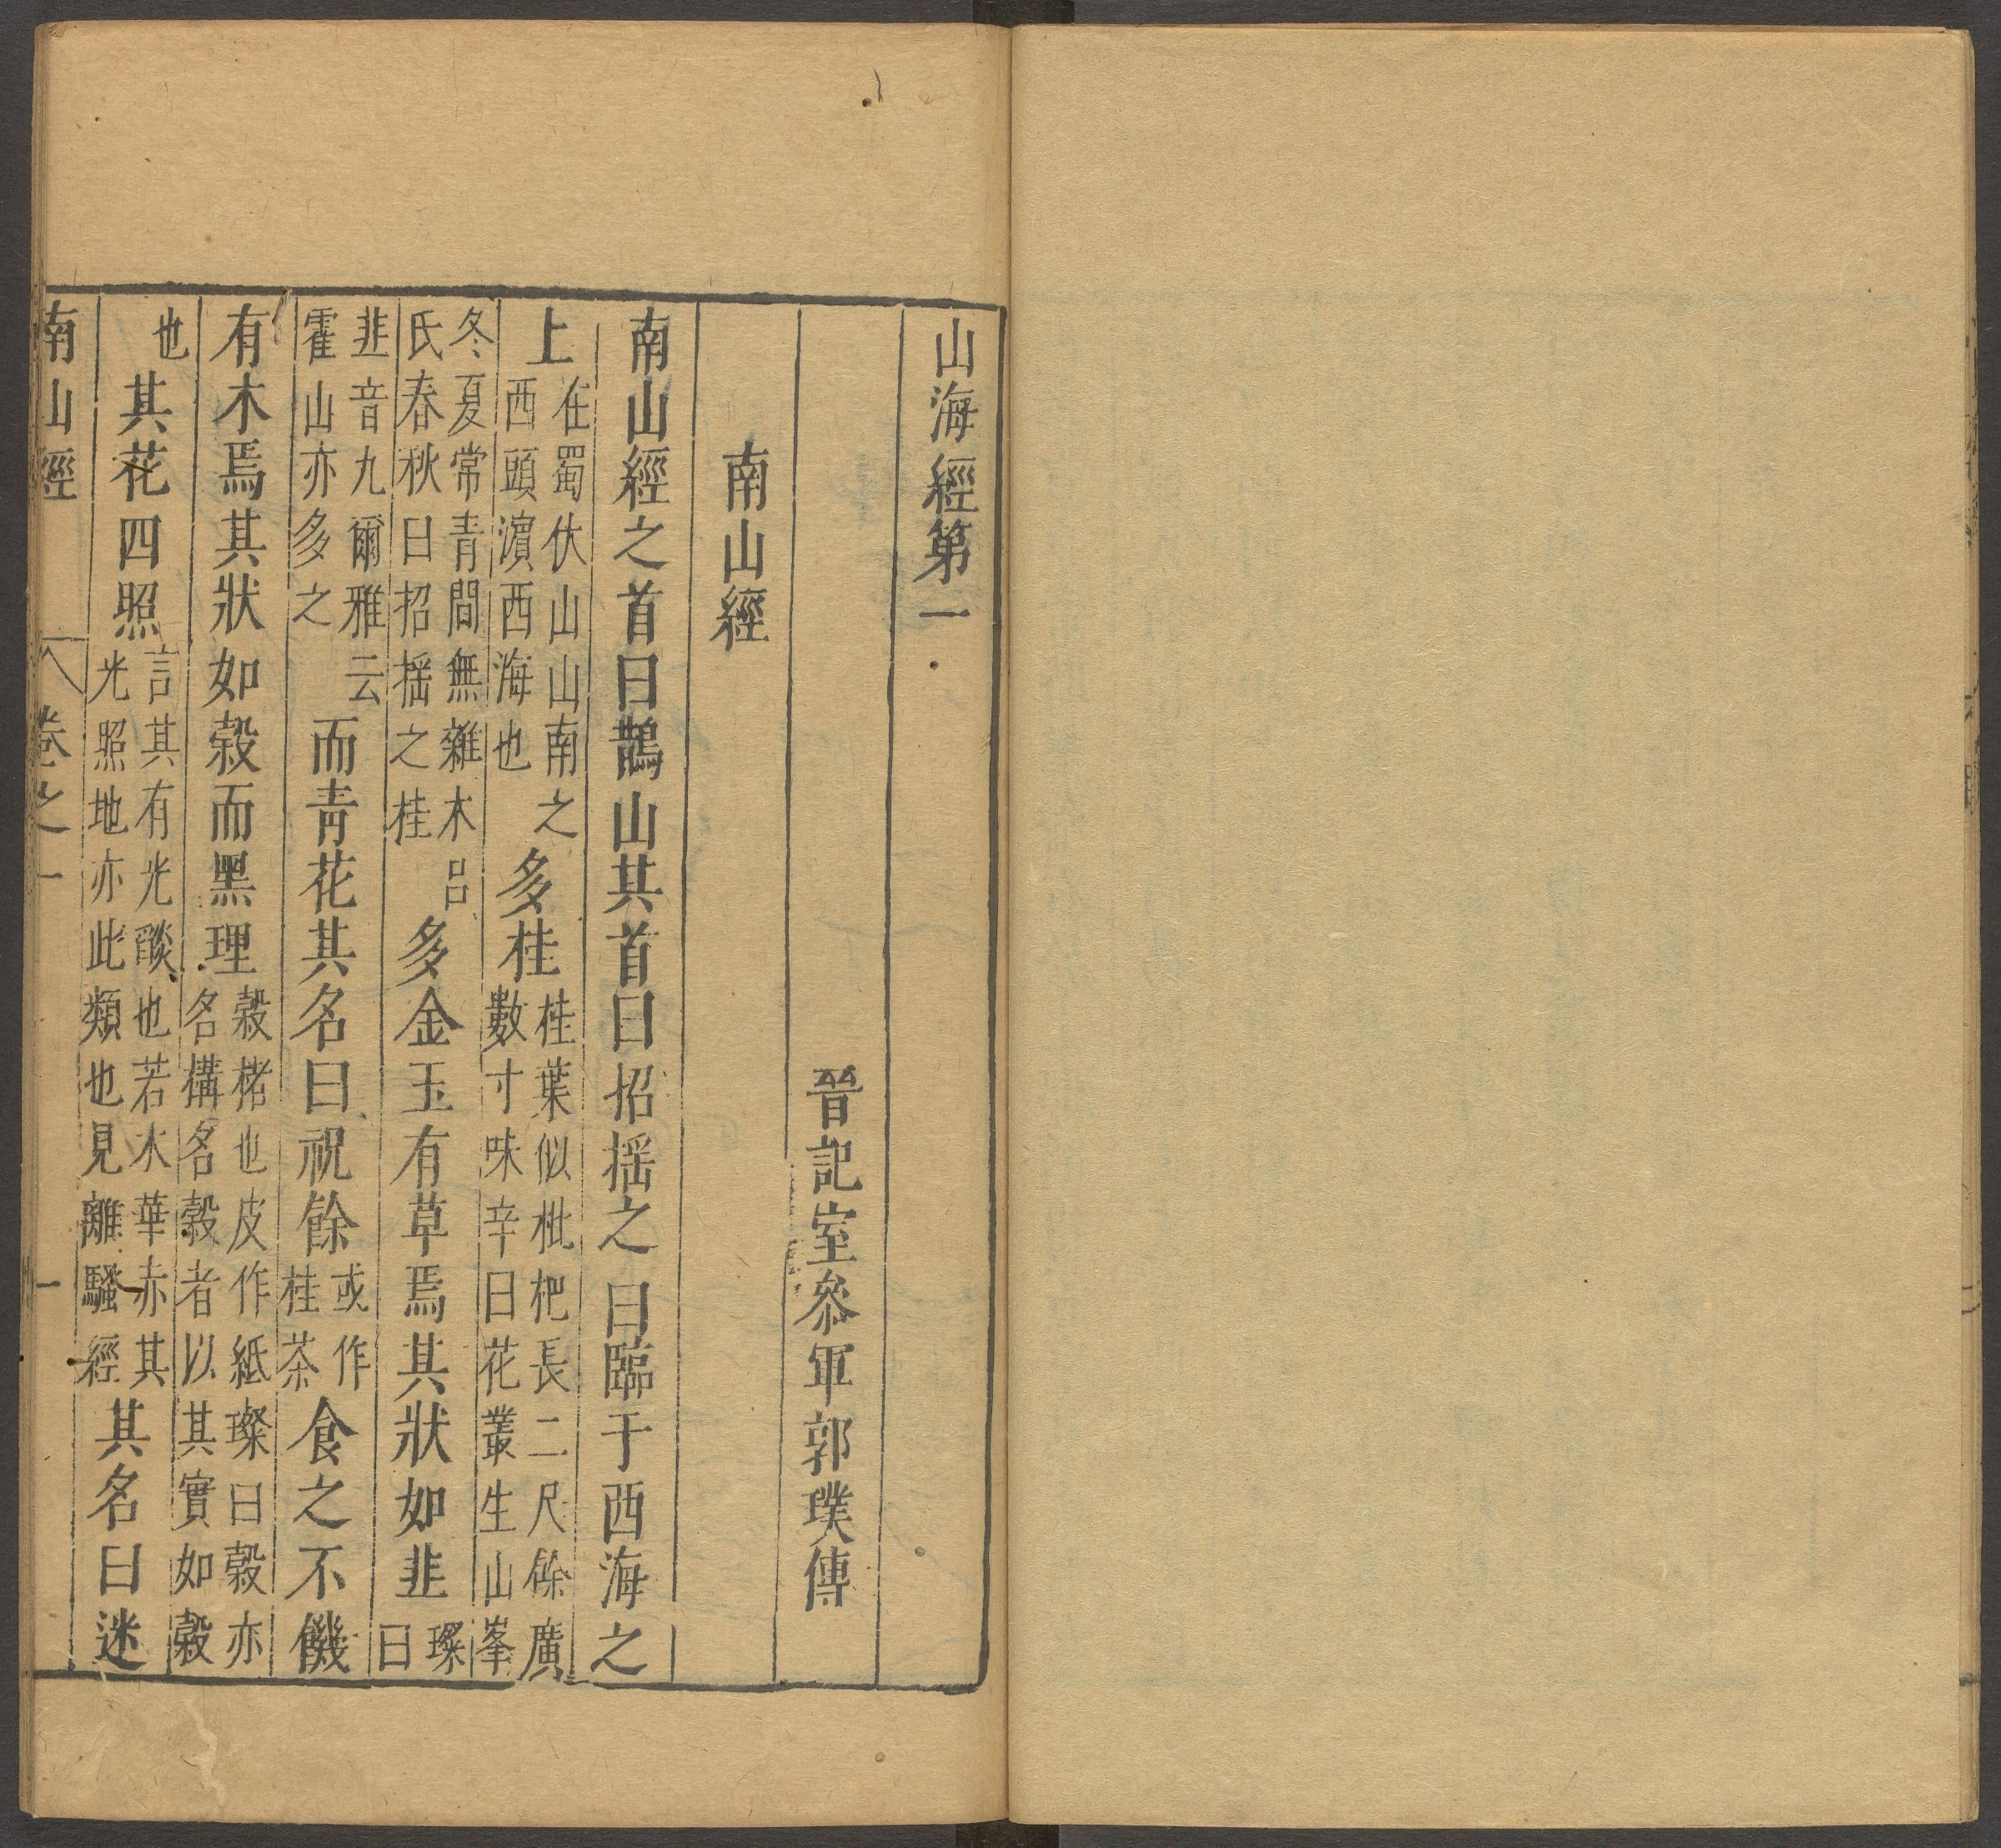 山海經第一
晉記室叅軍郭璞傳
南山經
南山經之首曰䧿山其首曰招摇之曰臨于西海之
上在蜀伏山山南之西頭濵西海也多桂桂葉似枇杷長二尺餘廣數寸味辛日花叢生山峯
冬夏常青間無雜木呂氏春秋曰招摇之桂多金玉有草焉其狀如韭璨曰
韭音九爾雅云霍山亦多之而青花其名曰祝餘或作桂荼食之不饑
有木焉其狀如榖而黑理榖楮也皮作紙璨曰榖亦名構名榖者以其實如榖
也其花四照言其有光燄也若木華赤其光照地亦此類也見離騷經其名曰迷
南山經 卷之一 一